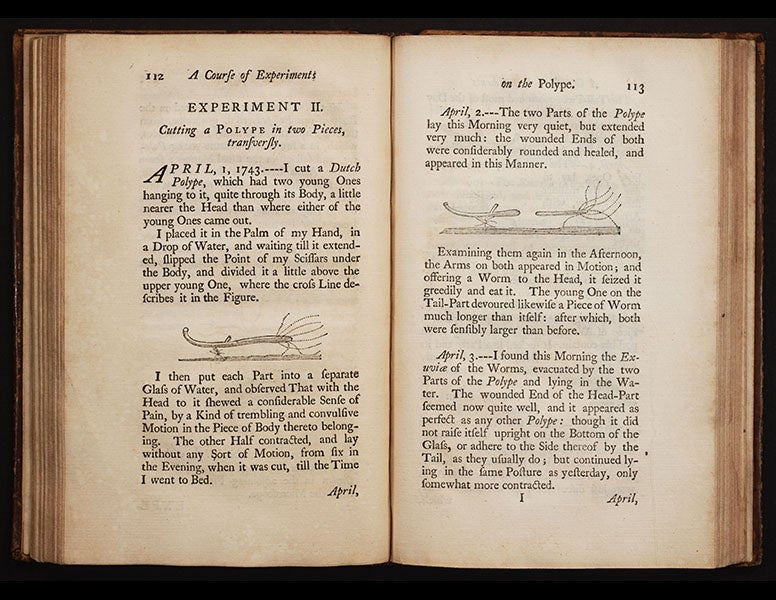 112 A Courſe of Experiments
EXPERIMENT II.
Cutting a POLYPE in two Pieces,
tranſverſly.
APRIL, 1, 1743.----I cut a Dutch
Polype, which had two young Ones
hanging to it, quite through its Body, a little
nearer the Head than where either of the
young Ones came out.
I placed it in the Palm of my Hand, in
a Drop of Water, and waiting till it extend-
ed, ſlipped the Point of my Sciſſars under
the Body, and divided it a little above the
upper young One, where the croſs Line de-
ſcribes it in the Figure.
I then put each Part into a ſeparate
Glaſs of Water, and obſerved That with the
Head to it ſhewed a conſiderable Senſe of
Pain, by a Kind of trembling and convulſive
Motion in the Piece of Body thereto belong-
ing. The other Half contracted, and lay
without any Sort of Motion, from ſix in
the Evening, when it was cut, till the Time
I went to Bed.
April,
on the Polype. 113
April, 2.---The two Parts of the Polype
lay this Morning very quiet, but extended
very much: the wounded Ends of both
were conſiderably rounded and healed, and
appeared in this Manner.
Examining them again in the Afternoon,
the Arms on both appeared in Motion; and
offering a Worm to the Head, it ſeized it
greedily and eat it. The young One on the
Tail-Part devoured likewiſe a Piece of Worm
much longer than itſelf: after which, both
were ſenſibly larger than before.
April, 3.---I found this Morning the Ex-
uviæ of the Worms, evacuated by the two
Parts of the Polype and lying in the Wa-
ter. The wounded End of the Head-Part
ſeemed now quite well, and it appeared as
perfect as any other Polype: though it did
not raiſe itſelf upright on the Bottom of the
Glaſs, or adhere to the Side thereof by the
Tail, as they uſually do; but continued ly-
ing in the ſame Poſture as yeſterday, only
ſomewhat more contracted.
I April,